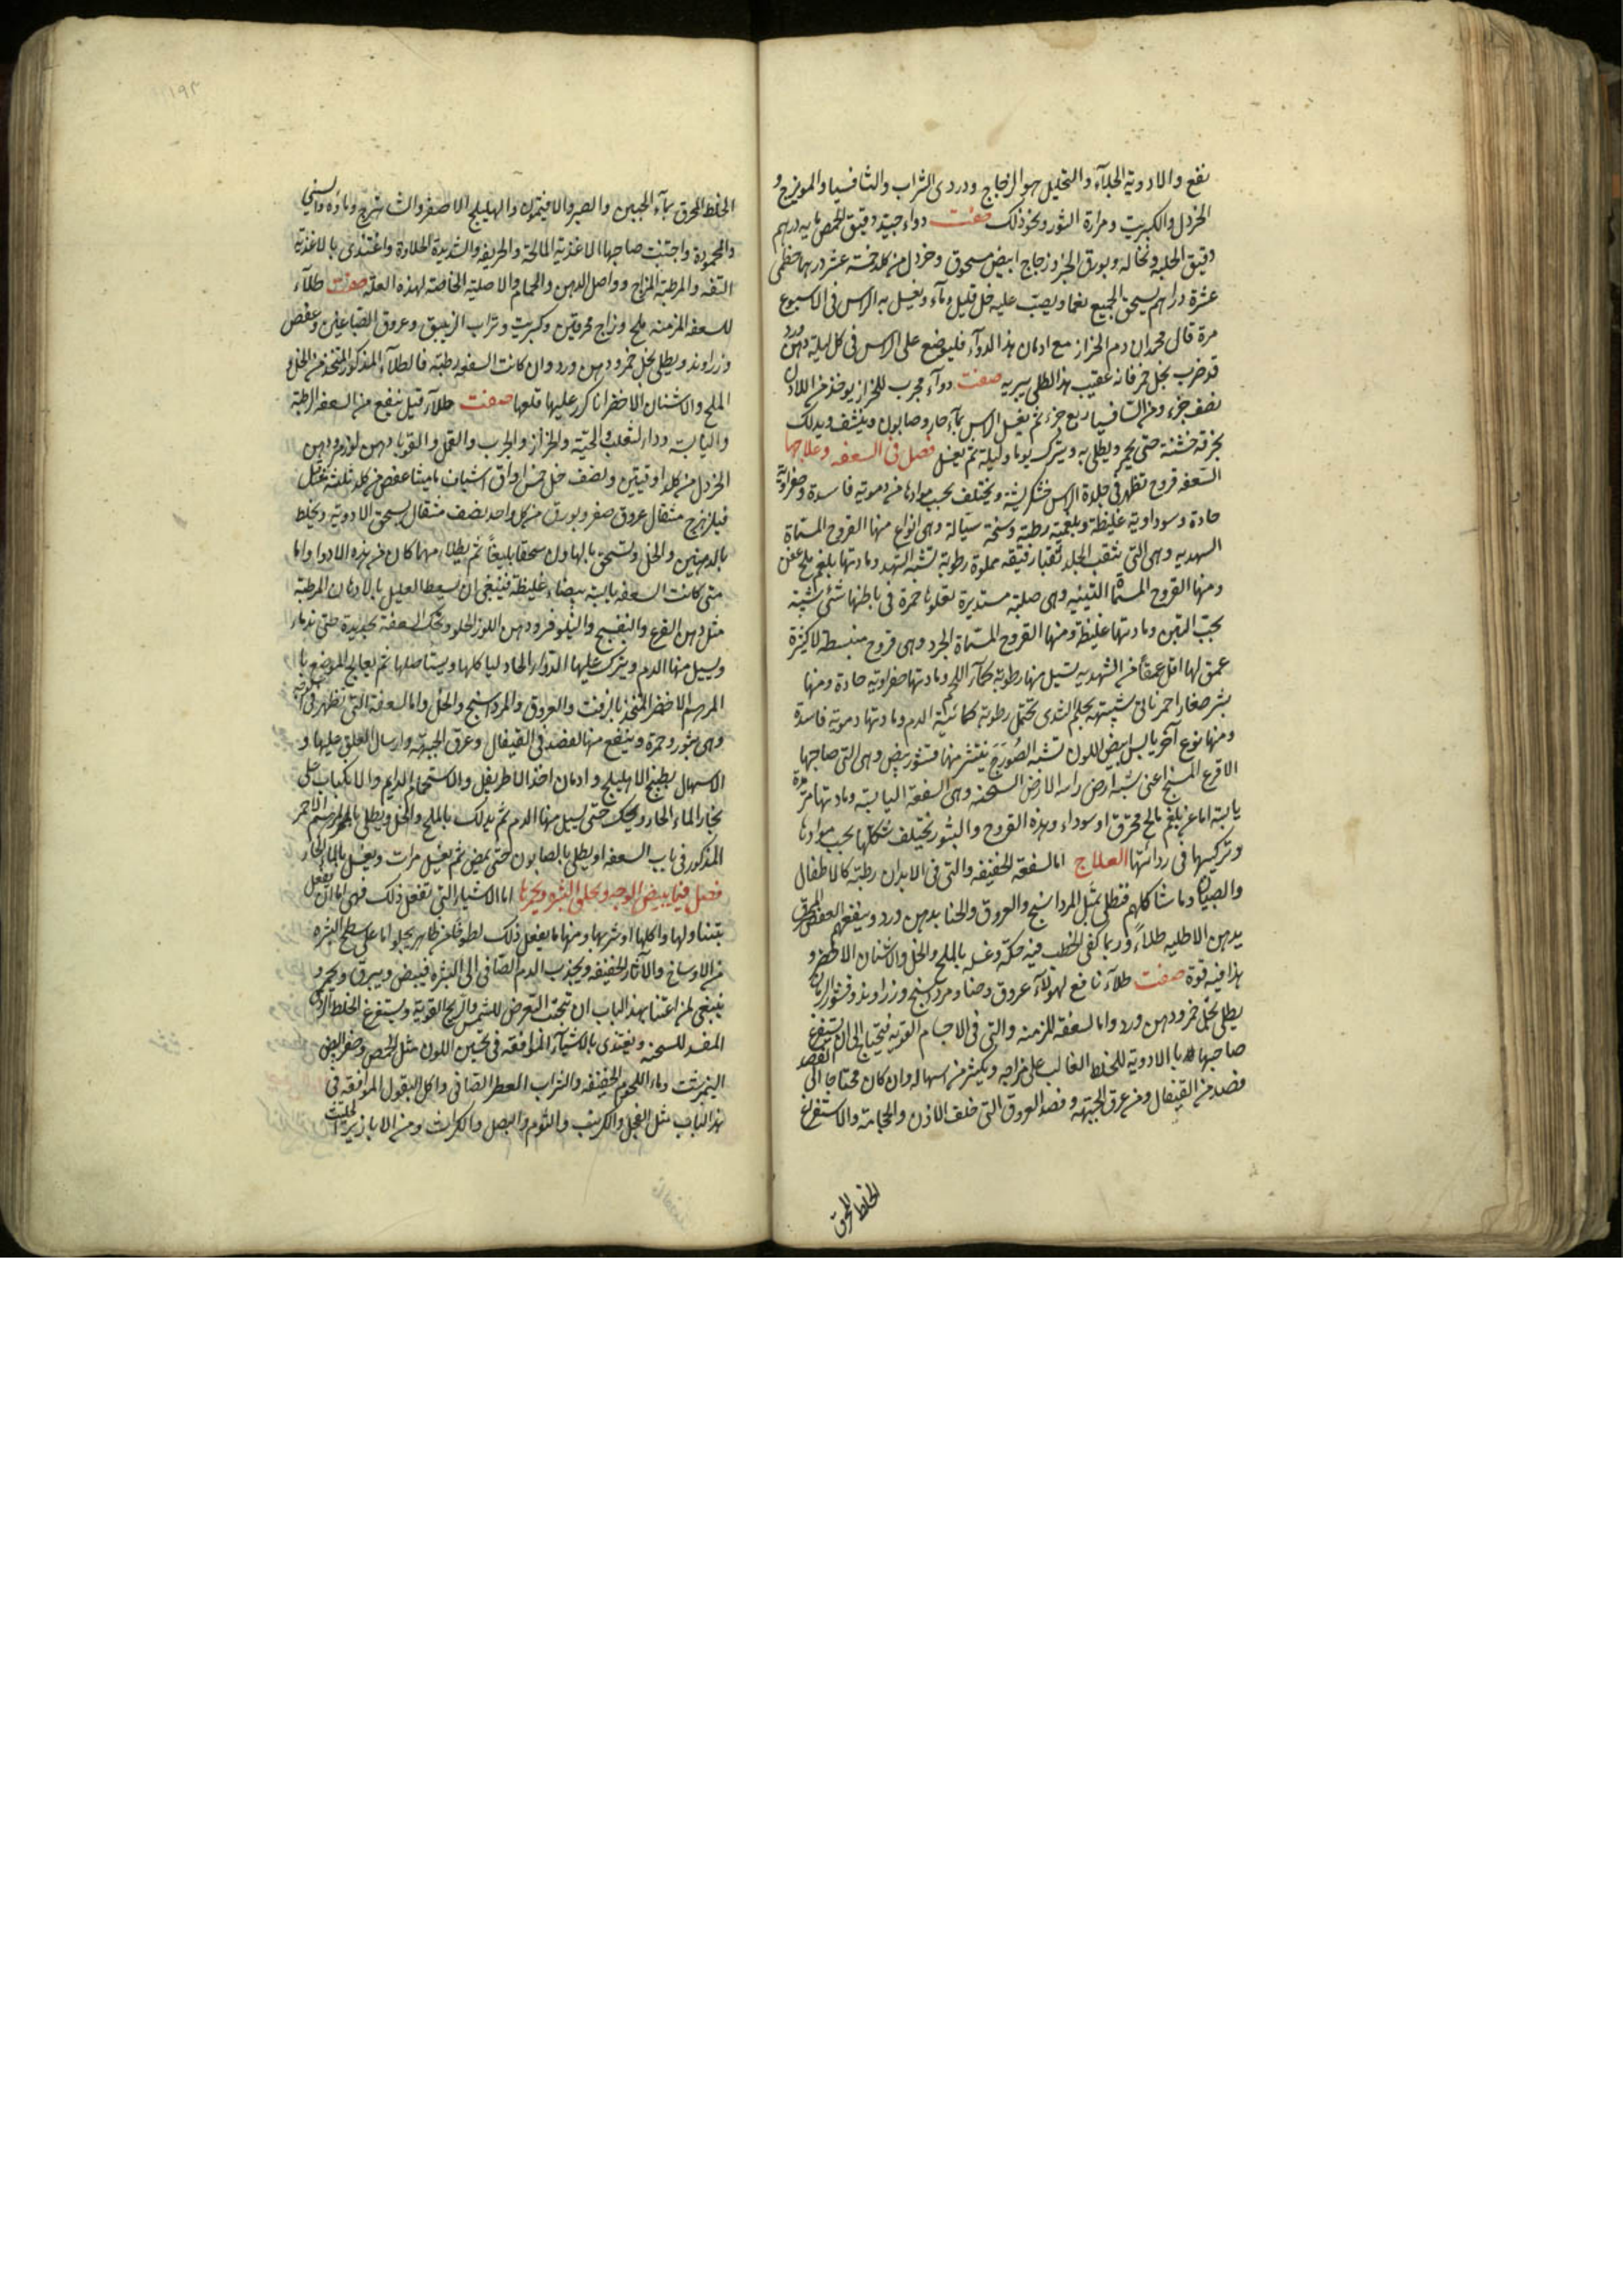 نفع والادوية الجلآءة والتحليل هو الزجاج ودردى الشراب والثافسيا والمويزج و
الخردل والكبريت ومرارة الثور ونحو ذلك صفت دواء جيد دقيق الحمص مايه درهم
دقيق الحلبه ونخاله وبورق الخبز وزجاج ابيض مسحوق وخردل من كلد خمسة عشر درهما خطمى
عشرة دراهم يسحق الجميع نعما ويصب عليه خل قليل وماء ويغسل به الراس فى الاسبوع
مرة قال محمد ان دم الحزاز مع ادمان هذا الدوآء فليوضع على الراس فى كل ليلة دهن ورد
قد ضرب بخل خمر فانه عقيب هذا الطلى يبريه صفت دوآء مجرب للحزاز يوخذ من اللادن
نصف جزء ومن الثافسيا ربع جزء ثم يغسل الراس بمآء حار وصابون وينشف ويدلك
بخرقة خشنة حتى يحمر ويطلى به ويترك يوما وليلة ثم يغسل فصل فى السعفه وعلاجها
السعفه قروح تظهر فى جلدة الراس خشكريشة ويختلف بحسب موادها من دموية فاسدة وصفراوية
حادة وسوداوية غليظة وبلغمية رطبة وسنحة سيالة وهى انواع منها القروح المسماة
الشهديه وهى التى تثقب الجلد ثقبا رقيقه مملوة رطوبة تشبه الشهد ومادتها بلغم مالح عفن
ومنها القروح المسماة التينيه وهى صلبة مستديرة تعلوها حمرة فى باطنها شئ شبيه
بحب التين ومادتها غليظة ومنها القروح المسماة الجرد وهى قروح منبسطة لا كثيرة
عمق لها اقل عمقا من الشهديه تسيل منها رطوبة كمآء اللحم ومادتها صفراوية حادة ومنها
بثر صغار احمر ناتى شبيهة بحلم الثدى تحتمل رطوبة كمائية الدم ومادتها دموية فاسدة
ومنها نوع آخر يابس ابيض اللون تشبه الصُورَج ينتثر منها قشور بيض وهى التى صاحبها
الاقرع السنج اعنى شبه ارض راسه الارض السنحه وهى السعفة اليابسة ومادتها مرة
يابسة اما عن بلغم مالح محترق او سوداء وهذه القروح والبثور يختلف شكلها بحسب موادها
وتركيبها فى ردائتها العلاج اما السعفة الخفيفه والتى فى الابدان رطبة كالاطفال
والصبيان وما شاكلهم فتطلى بمثل المرداسنج والعروق والحنا بدهن ورد وينفعهم العفص المحرق
بدهن الاطليه طلاءً وربما كفى الخطب فيه حكة وغسله بالملح والخل والاشنان الاخضر و
هذا فيه قوة صفت طلآء نافع لهولآء عروق وحنا ومرداسنج وزراوند وقشور الرمان
يطلى بخل خمر ودهن ورد واما السعفة المزمنه والتى فى الاجسام القويه فيحتاج الى ان يستفرغ
صاحبها بالادوية للخلط الغالب على مزاجه ويكثر من اسهاله وان كان محتاجا الى الفصد
فصد من القيفال ومن عرق الجبهة وفصد العروق التى خلف الاذن والحجامة والاستفراغ
الخلط المحرق
الخلط المحرق بمآء الجبن والصبر والافيتمون والهليلج الاصفر والشاهترج وماده واسنى
والمحمودة واجتنب صاحبها الاغذية المالحة والحريفه والشديدة الحلاوة واغتذى بالاغذية
التفه والمرطبة المزاج وواصل الدهن والحمام والاصلية الخاصة لهذه العلة صفت طلآء
للسعفه المزمنه ملح وزاج محرقين وكبريت وتراب الزيبق وعروق الصباغين وعفص
وزراوند ويطلى بخل خمر ودهن ورد وان كانت السعفه رطبة فالطلآء المذكور المتخذ من الخل و
الملح والاشنان الاخضر اذا كرر عليها قلعها صفت طلآء قيل ينفع من السعفه الرطبة
واليابسة وداء الثعلب والحية والحزاز والجرب والقمل والقوبا دهن لوز ودهن
الخردل من كلد اوقيتين ونصف خل خمس اواق اشياف ماميثا عفص من كلد ثلثة مثاقيل
فيلزهرج مثقال عروق صفر وبورق من كل واحد نصف مثقال يسحق الادوية ويخلط
بالدهنين والخل وتسحق بالهاون سحقا بليغاً ثم يطلى منها كان من هذه الادوا واما
متى كانت السعفه يابسة بيضاء غليظة فينبغى ان يسعط العليل بالادهان المرطبة
مثل دهن القرع والبنفسج والنيلوفر ودهن اللوز الحلو وتحك السعفة بحديدة حتى تدما
ويسيل منها الدم ويترك عليها الدواء الحاد لياكلها ويستاصلها ثم يعالج الموضع با
المرهم الاخضر المتخذ بالزفت والعروق والمرداسنج والخل واما السعفة التى تظهر فى الوجه
وهى بثور وحمرة وينفع منها الفصد فى القيفال وعرق الجبهة وارسال العلق عليها و
الاسهال بطبيخ الاهليلج وادمان اخذ الاطريفل والاستحمام الدايم والانكباب على
بخار الماء الحار ويحك حتى يسيل منها الدم ثم يدلك بالملح والخل ويطلى بالمرهم الاحمر
المذكور فى باب السعفه او يطلى بالصابون حتى يمض ثم يغسل مرات ويغسل بالماء الحار
فصل فيما يبيض الوجه ويجلى البشره ويحمرها اما الاشياء التى تفعل ذلك فهى اما ان تفعل
بتناولها واكلها او شربها ومنها ما يفعل ذلك لطوخا من ظاهر يجلو اما على سطح البشره
من الاوساخ والآثار الخفيفه ويجذب الدم الصافى الى البشرة فيبيض ويبرق ويحمر و
ينبغى لمن اعتنا بهذا الباب ان يتجنب التعرض للشمس والريح القوية ويستفرغ الخلط الردى
المفسد للسحنه ويغتذى بالاشيآء الموافقه فى تحسين اللون مثل الحمص وصفر البيض
النيمبرشت وماء اللحوم الخفيفه والشراب العطر الصافى واكل البقول الموافقه فى
هذا الباب مثل الفجل والكرنب والثوم والبصل والكراث ومن الابازير الحلتيت